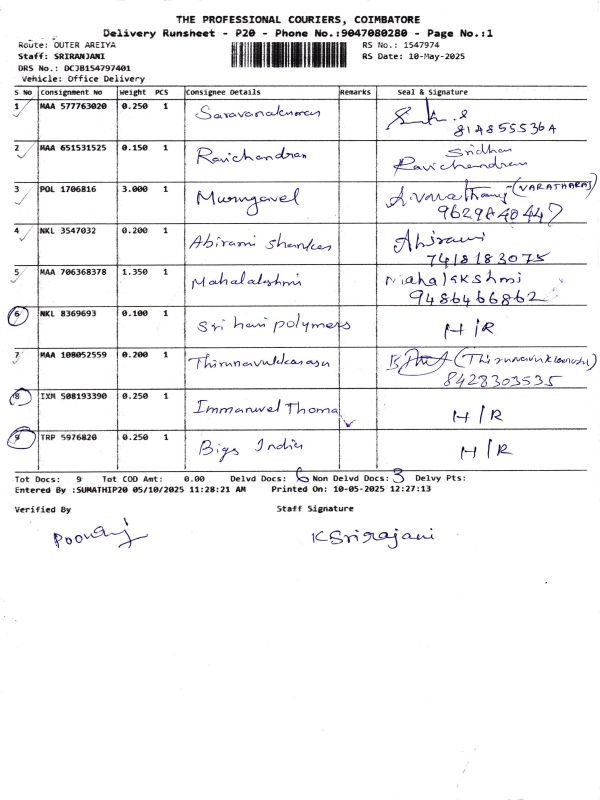 THE PROFESSIONAL COURIERS, COIMBATORE
Delivery Runsheet - P20 - Phone No.:9047080280 - Page No.:1
Route: OUTER AREIYA RS No.: 1547974
Staff: SRIRANJANI RS Date: 10-May-2025
DRS No.: DCJB154797401
Vehicle: Office Delivery
S No Consignment No Weight PCS Consignee Details Remarks Seal & Signature
1 MAA 577763020 0.250 1 Saravanakumar
8148555364
2 MAA 651531525 0.150 1 Ravichandran Sridhar
Ravichandran
3 POL 1706816 3.000 1 Murugavel (VARATHARAJ)
9629840447
4 NKL 3547032 0.200 1 Abirami Shankar Abirami
7418183075
5 MAA 706368378 1.350 1 Mahalakshmi Mahalakshmi
9486466862
6 NKL 8369693 0.100 1 Sri hari polymers H/R
7 MAA 108052559 0.200 1 Thirunavukkarasu
8428303535
8 IXM 508193390 0.250 1 Immanuvel Thoma H/R
9 TRP 5976820 0.250 1 Bigs India H/R
Tot Docs: 9 Tot COD Amt: 0.00 Delvd Docs: 6 Non Delvd Docs: 3 Delvy Pts:
Entered By :SUMATHIP20 05/10/2025 11:28:21 AM Printed On: 10-05-2025 12:27:13
Verified By Staff Signature
K Srirajani